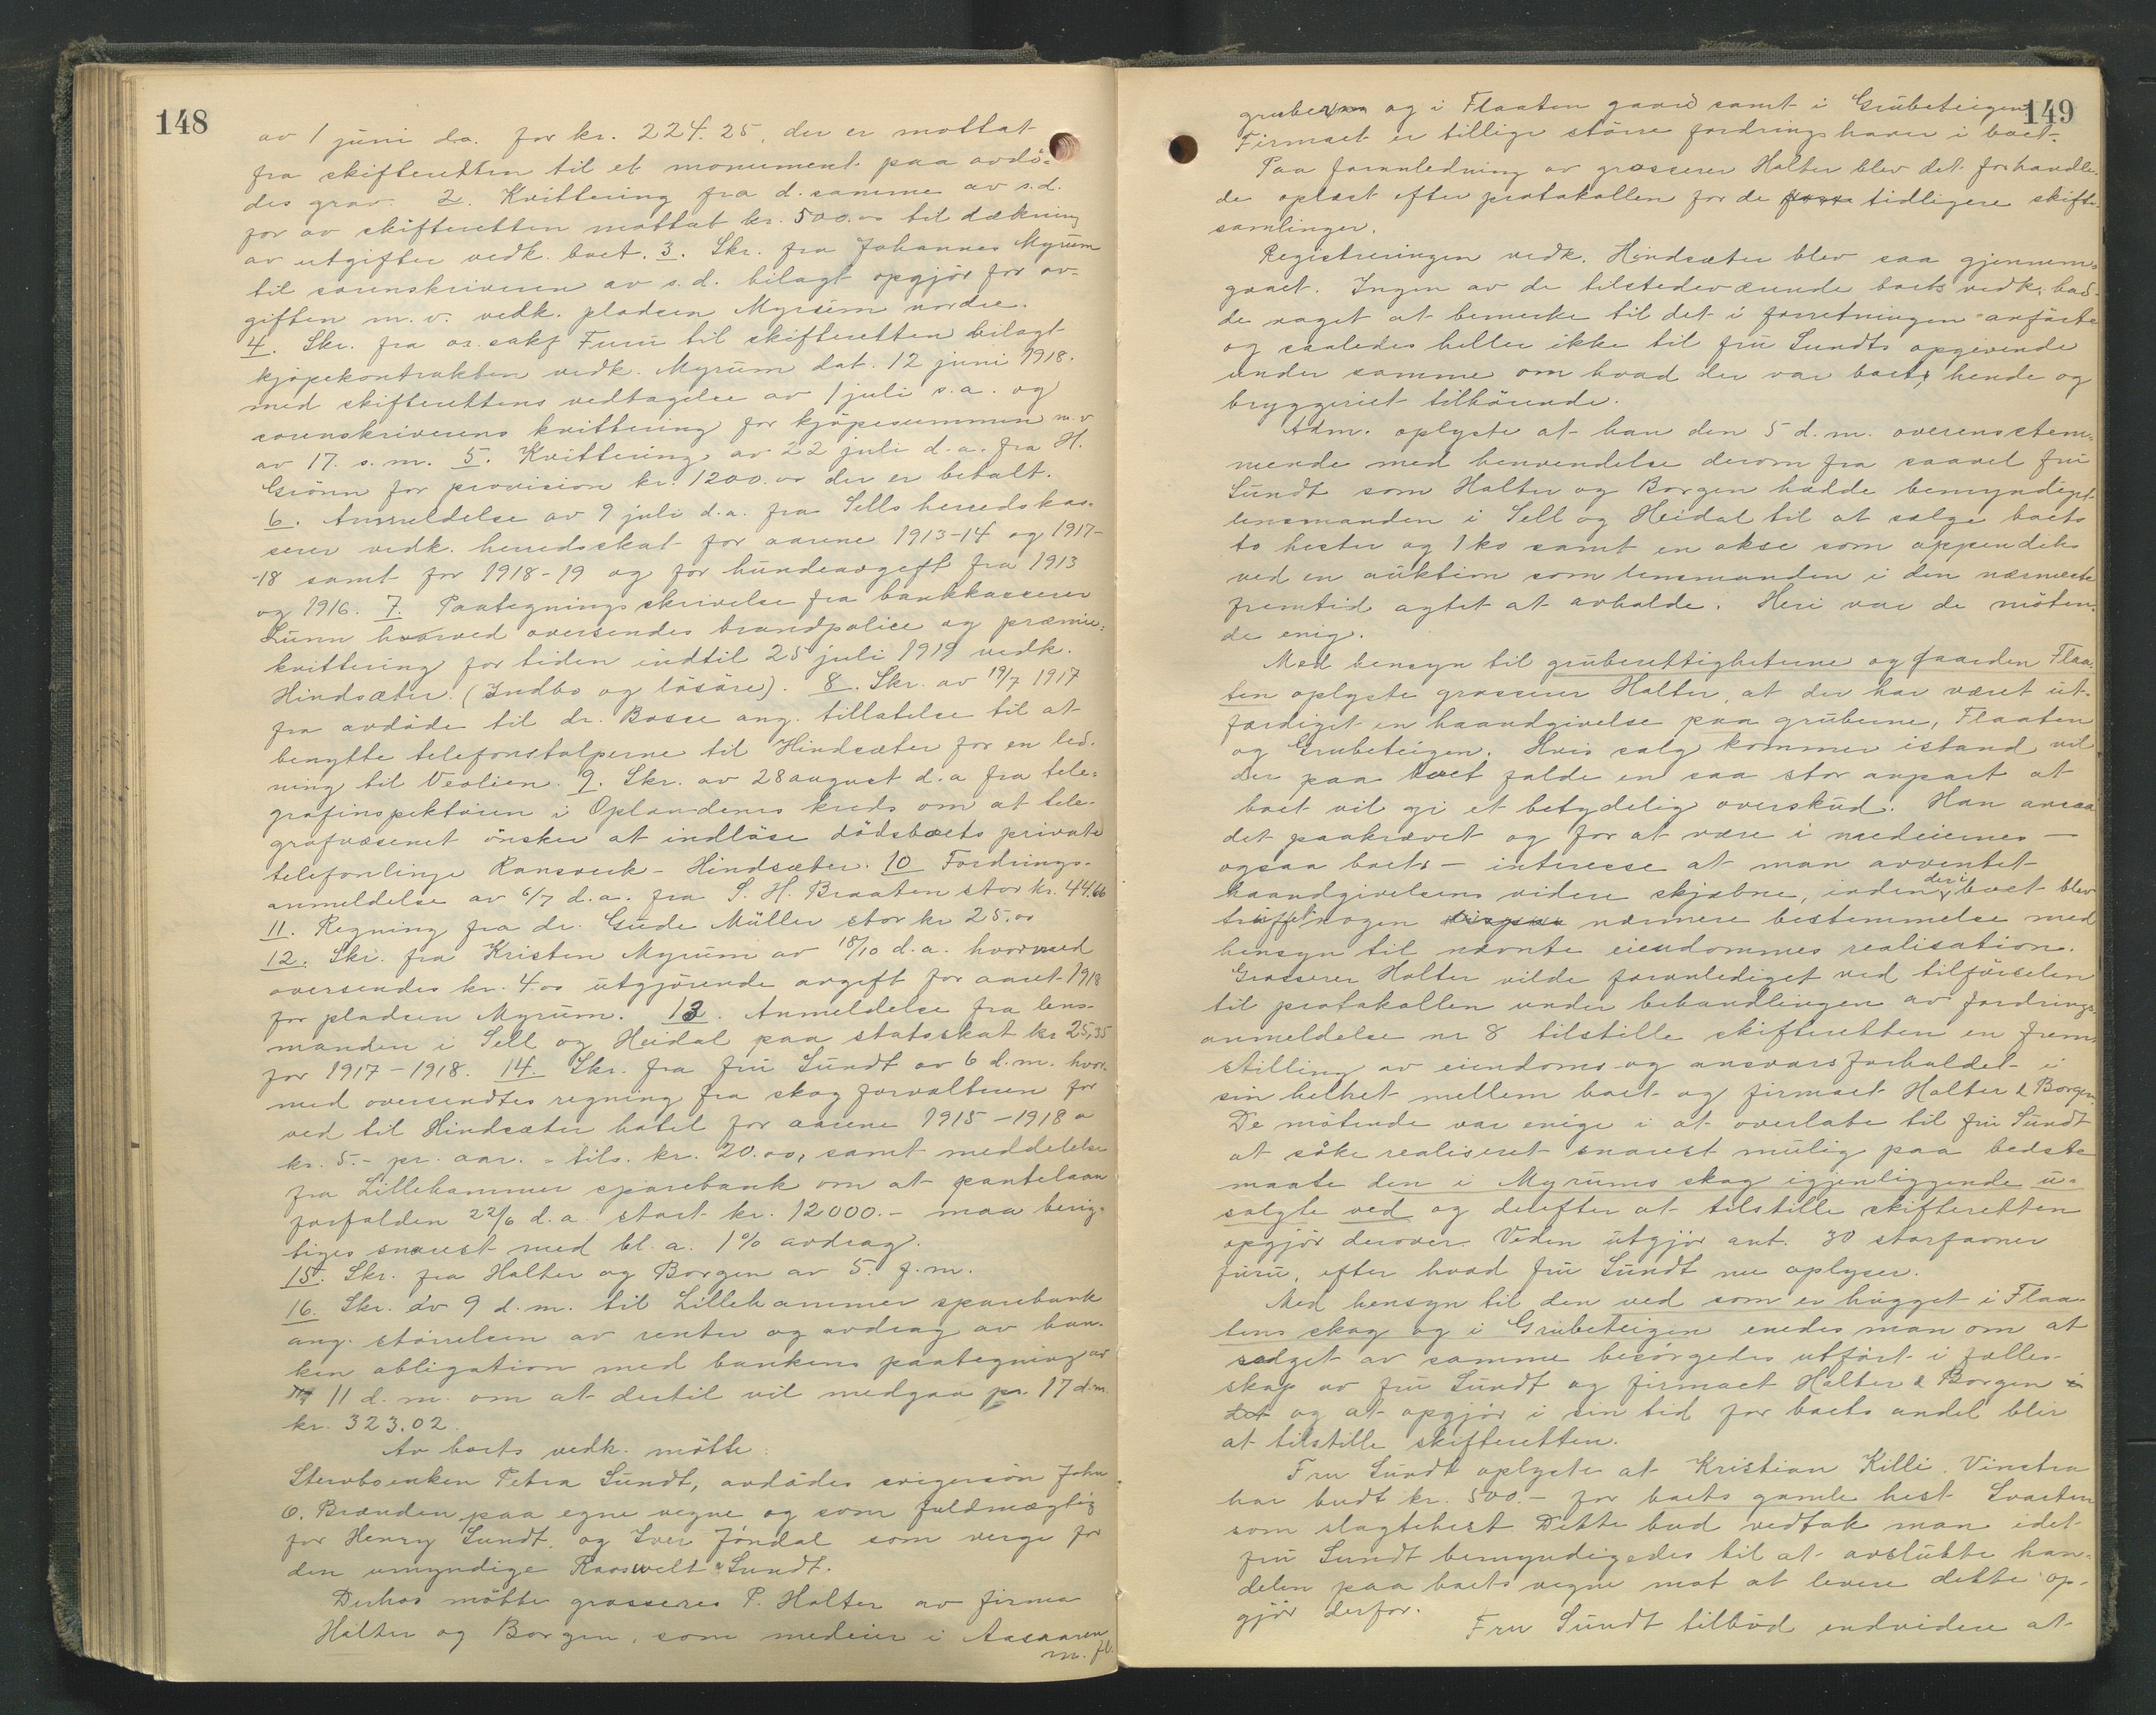 148
av 1 juni d.a. for kr. 224.25, der er mottat
fra skifteretten til et monument paa avdö-
des grav. 2. Kvittering fra d. samme av s.d.
for av skifteretten mottat kr. 500.00 til dækning
av utgifter vedk. boet. 3. Skr. fra Johannes Myrum
til sorenskriveren av s.d. bilagt opgjör for av-
giften m.v. vedk. pladsen Myrum nordre.
4. Skr. fra or. sakf Furu til skifteretten bilagt
kjöpekontrakten vedk. Myrum dat. 12 juni 1918.
med skifterettens vedtagelse av 1 juli s.a. og
sorenskriverens kvittering for kjöpesummen m.v
av 17. s.m. 5. Kvittering av 22 juli d.a. fra H.
Grönn for provision kr. 1200.00 der er betalt.
6. Anmeldelse av 9 juli d.a. fra Sells herredskas-
serer vedk. herredsskat for aarene 1913-14 og 1917-
-18 samt for 1918-19 og for hundeavgift fra 1913
og 1916. 7. Paategningsskrivelse fra bankkasserer
Lunn hvorved oversendes brandpolice og præmie-
kvittering for tiden indtil 25 juli 1919 vedk.
Hindsæter. (Indbo og lösöre). 8. Skr. av 19/7 1917
fra avdöde til dr. Bosse ang. tillatelse til at
benytte telefonstolperne til Hindsæter for en led-
ning til Veolien. 9. Skr. av 28 august d.a fra tele-
grafinspektören i Oplandenes kreds om at tele-
grafvæsenet önsker at indlöse dödsboets private
telefonlinje Randsverk - Hindsæter. 10 Fordrings-
anmeldelse av 6/7 d.a. fra S. H. Braaten stor kr. 44.66
11. Regning fra dr. Gude Müller stor kr 25.00
12. Skr. fra Kristen Myrum av 18/10 d.a. hvormed
oversendes kr. 4.00 utgjörende avgift for aaret 1918
for pladsen Myrum. 13. Anmeldelse fra lens-
manden i Sell og Heidal paa statsskat kr 25,35
for 1917-1918. 14. Skr. fra fru Sundt av 6 d.m. hvor-
med oversendtes regning fra skogforvalteren for
ved til Hindsæter hotel for aarene 1915-1918 a
kr. 5.- pr. aar. = tils. kr. 20.00, samt meddelelse
fra Lillehammer sparebank om at pantelaan
forfalden 22/6 d.a. stort kr. 12000.- maa berig-
tiges snarest med bl.a. 1% avdrag.
15. Skr. fra Halter og Borgen av 5. f.m.
16. Skr. av 9 d.m. til Lillehammer sparebank
ang. störrelsen av renter og avdrag av ban-
ken obligation med bankens paategning av
11 d.m. om at dertil vil medgaa pr. 17 d.m.
kr. 323.02.
Av boets vedk. mötte:
Stervboenken Petra Sundt, avdödes svigersön John
O. Brænden paa egne vegne og som fuldmægtig
for Henry Sundt, og Iver Jöndal som verge for
den umyndige Rooswelt Sundt.
Derhos mötte grosserer P. Halter av firma
Halter og Borgen, som medeier i Aasaaren
m. fl.
149
gruber og i Flaaten gaard samt i Grubeteigen
Firmaet er tillige större fordringshaver i boet.
Paa foranledning av grosserer Halter blev det forhandle-
de oplæst efter protokollen for de tidligere skifte-
samlinger.
Registreringen vedk. Hindsæter blev saa gjennem-
gaaet. Ingen av de tilstedeværende boets vedk. had-
de noget at bemerke til det i forretningen anförte
og saaledes heller ikke til fru Sundts opgivende
under samme om hvad der var boets, hende og
bryggeriet tilhörende.
Adm. oplyste at han den 5 d.m. overensstem-
mende med henvendelse derom fra saavel fru
Sundt som Halter og Borgen hadde bemyndiget
lensmanden i Sell og Heidal til at sælge boets
to hester og 1 ko samt en okse som oppendeles
ved en auktion som lensmanden i den nærmeste
fremtid agtet at avholde. Heri var de möten-
de enig.
Med hensyn til gruberettigheterne og gaarden Flaa-
ten oplyste grosserer Halter, at der har været ut-
færdiget en haandgivelse paa gruberne, Flaaten
og Grubeteigen. Hvis salg kommer istand vil
der paa boet falde en saa stor anpart at
boet vil gi et betydelig overskud. Han ansaa
det paakrævet og for at være i medeiernes -
ogsaa boets - interesse at man avventet
haandgivelsens videre skjæbne, inden der i boet blev
truffet nogen nærmere bestemmelse med
hensyn til nævnte eiendommes realisation.
Grosserer Halter vilde foranlediget ved tilförselen
til protokollen under behandlingen av fordrings-
anmeldelse nr 8 tilstille skifteretten en frem-
stilling av eiendoms og ansvarsforholdet i
sin helhet mellem boet og firmaet Halter & Borgen.
De mötende var enige i at overlate til fru Sundt
at söke realiseret snarest mulig paa bedste
maate den i Myrums skog igjenliggende u-
solgte ved og derefter at tilstille skifteretten
opgjör derover. Veden utgjör ant. 30 storfavner
furu, efter hvad fru Sundt nu oplyser.
Med hensyn til den ved som er hugget i Flaa-
tens skog og i Grubeteigen enedes man om at
salget av samme besörgedes utfört i fælles-
skap av fru Sundt og firmaet Halter & Borgen
og at opgjör i sin tid for boets andel blir
at tilstille skifteretten.
Fru Sundt oplyste at Kristian Killi, Vinstra
har budt kr. 500.- for boets gamle hest Svarten
som slagtehest. Dette bud vedtok man idet
fru Sundt bemyndigedes til at avslutte han-
delen paa boets vegne mot at levere dette op-
gjör derfor.
Fru Sundt tilböd endvidere at